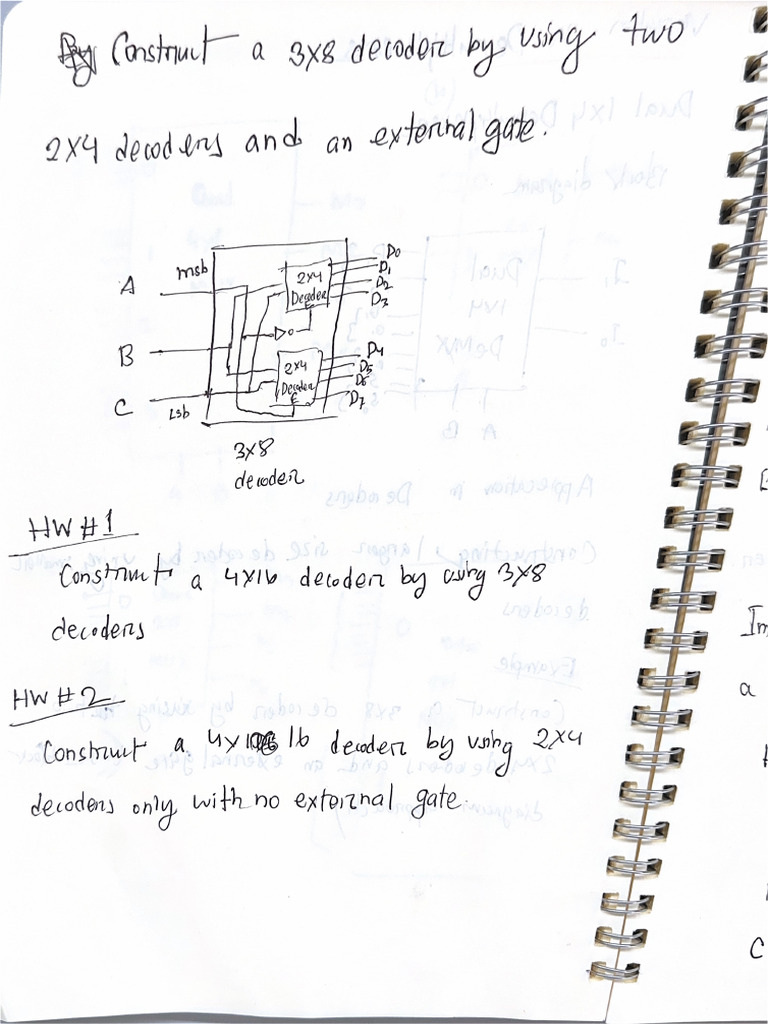 Construct a 3x8 decoder by using two
2x4 decoders and an external gate.
A msb
B
C lsb
2x4
Decoder
E
D0
D1
D2
D3
2x4
Decoder
E
D4
D5
D6
D7
3x8
decoder
HW #1
Construct a 4x16 decoder by using 3x8
decoders
HW #2
Construct a 4x 16 decoder by using 2x4
decoders only with no external gate.
Im
a
C